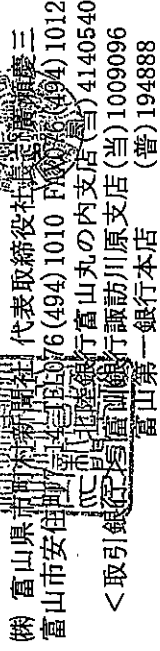 ㈱ 富山県市町村新聞社 代表取締役社長 廣瀬慶三
富山市安住町 TEL076(494)1010 FAX076(494)1012
<取引銀行> 北陸銀行富山丸の内支店(当)4140540
富山銀行諏訪川原支店(当)1009096
富山第一銀行本店 (普)194888